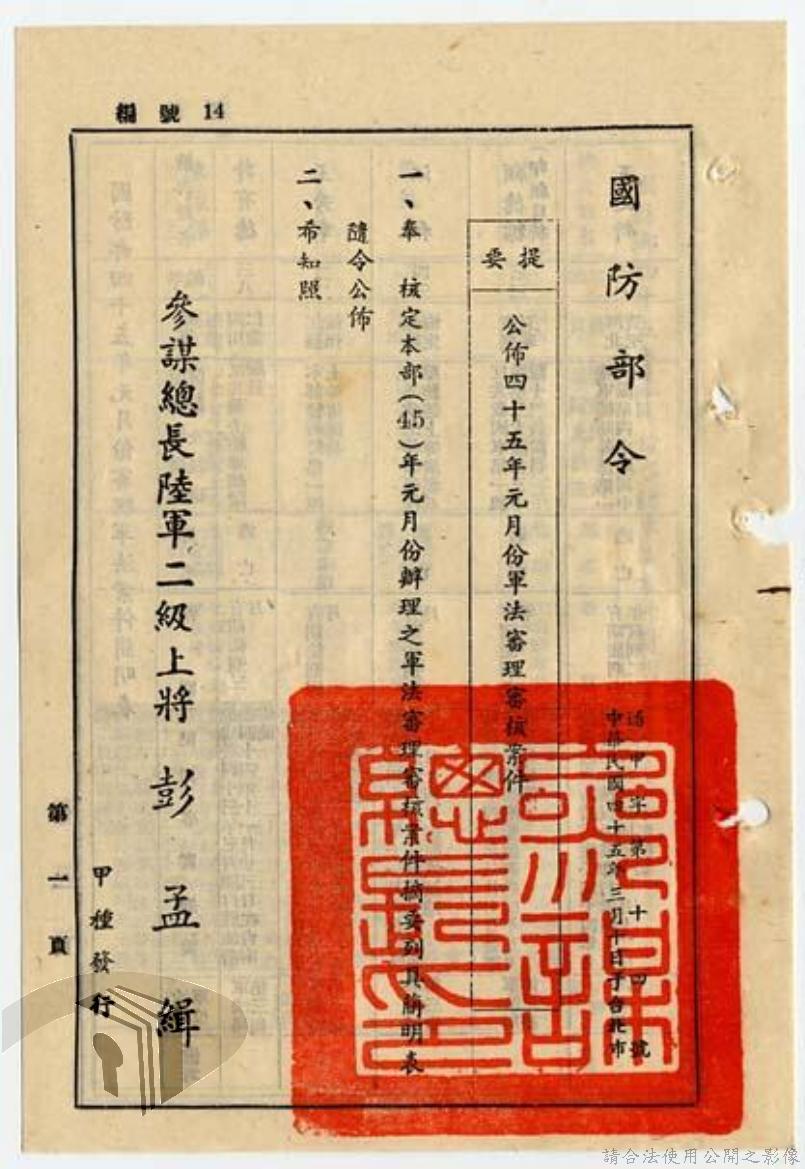 編號 14
國防部令
适甲字第十四號
中華民國四十五年三月十日于台北市
提要
公佈四十五年元月份軍法審理審核案件
一、奉　核定本部(45)年元月份辦理之軍法審理審核業件摘要列具簡明表
隨令公佈
二、希知照
參謀總長陸軍二級上將 彭孟緝
甲種發行
第一頁
請合法使用公開之影像